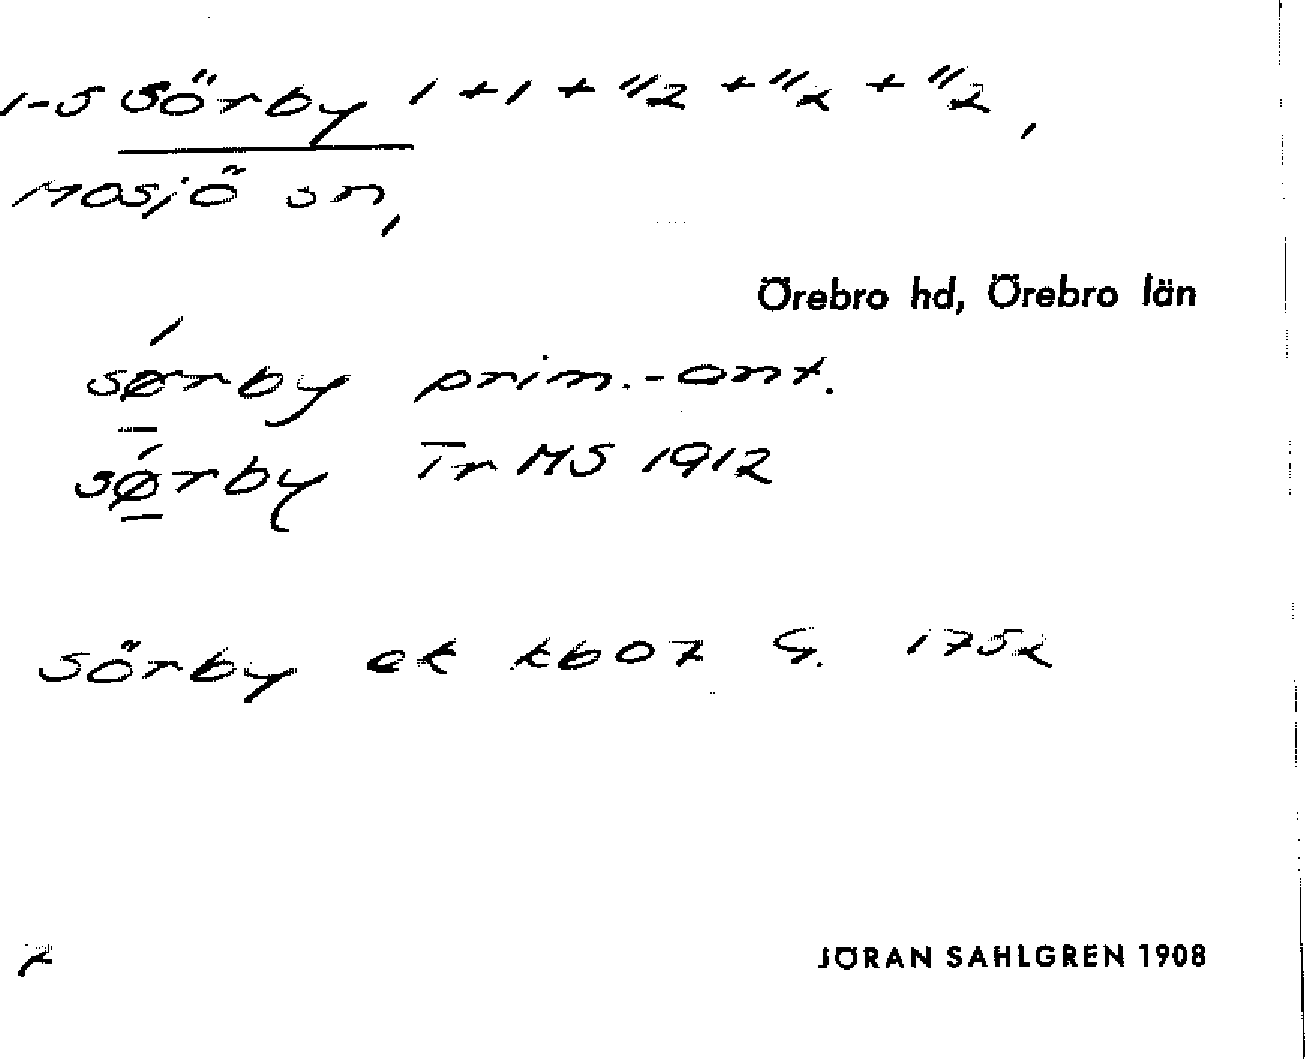 1-5 Sörby 1 + 1 + 1/2 + 1/2 + 1/2,
Mosjö sn,
Örebro hd, Örebro län
sǿ̱rby prim.-ant.
sǿ̱rby Tr MS 1912
Sörby ek kb07 G. 1752
JÖRAN SAHLGREN 1908